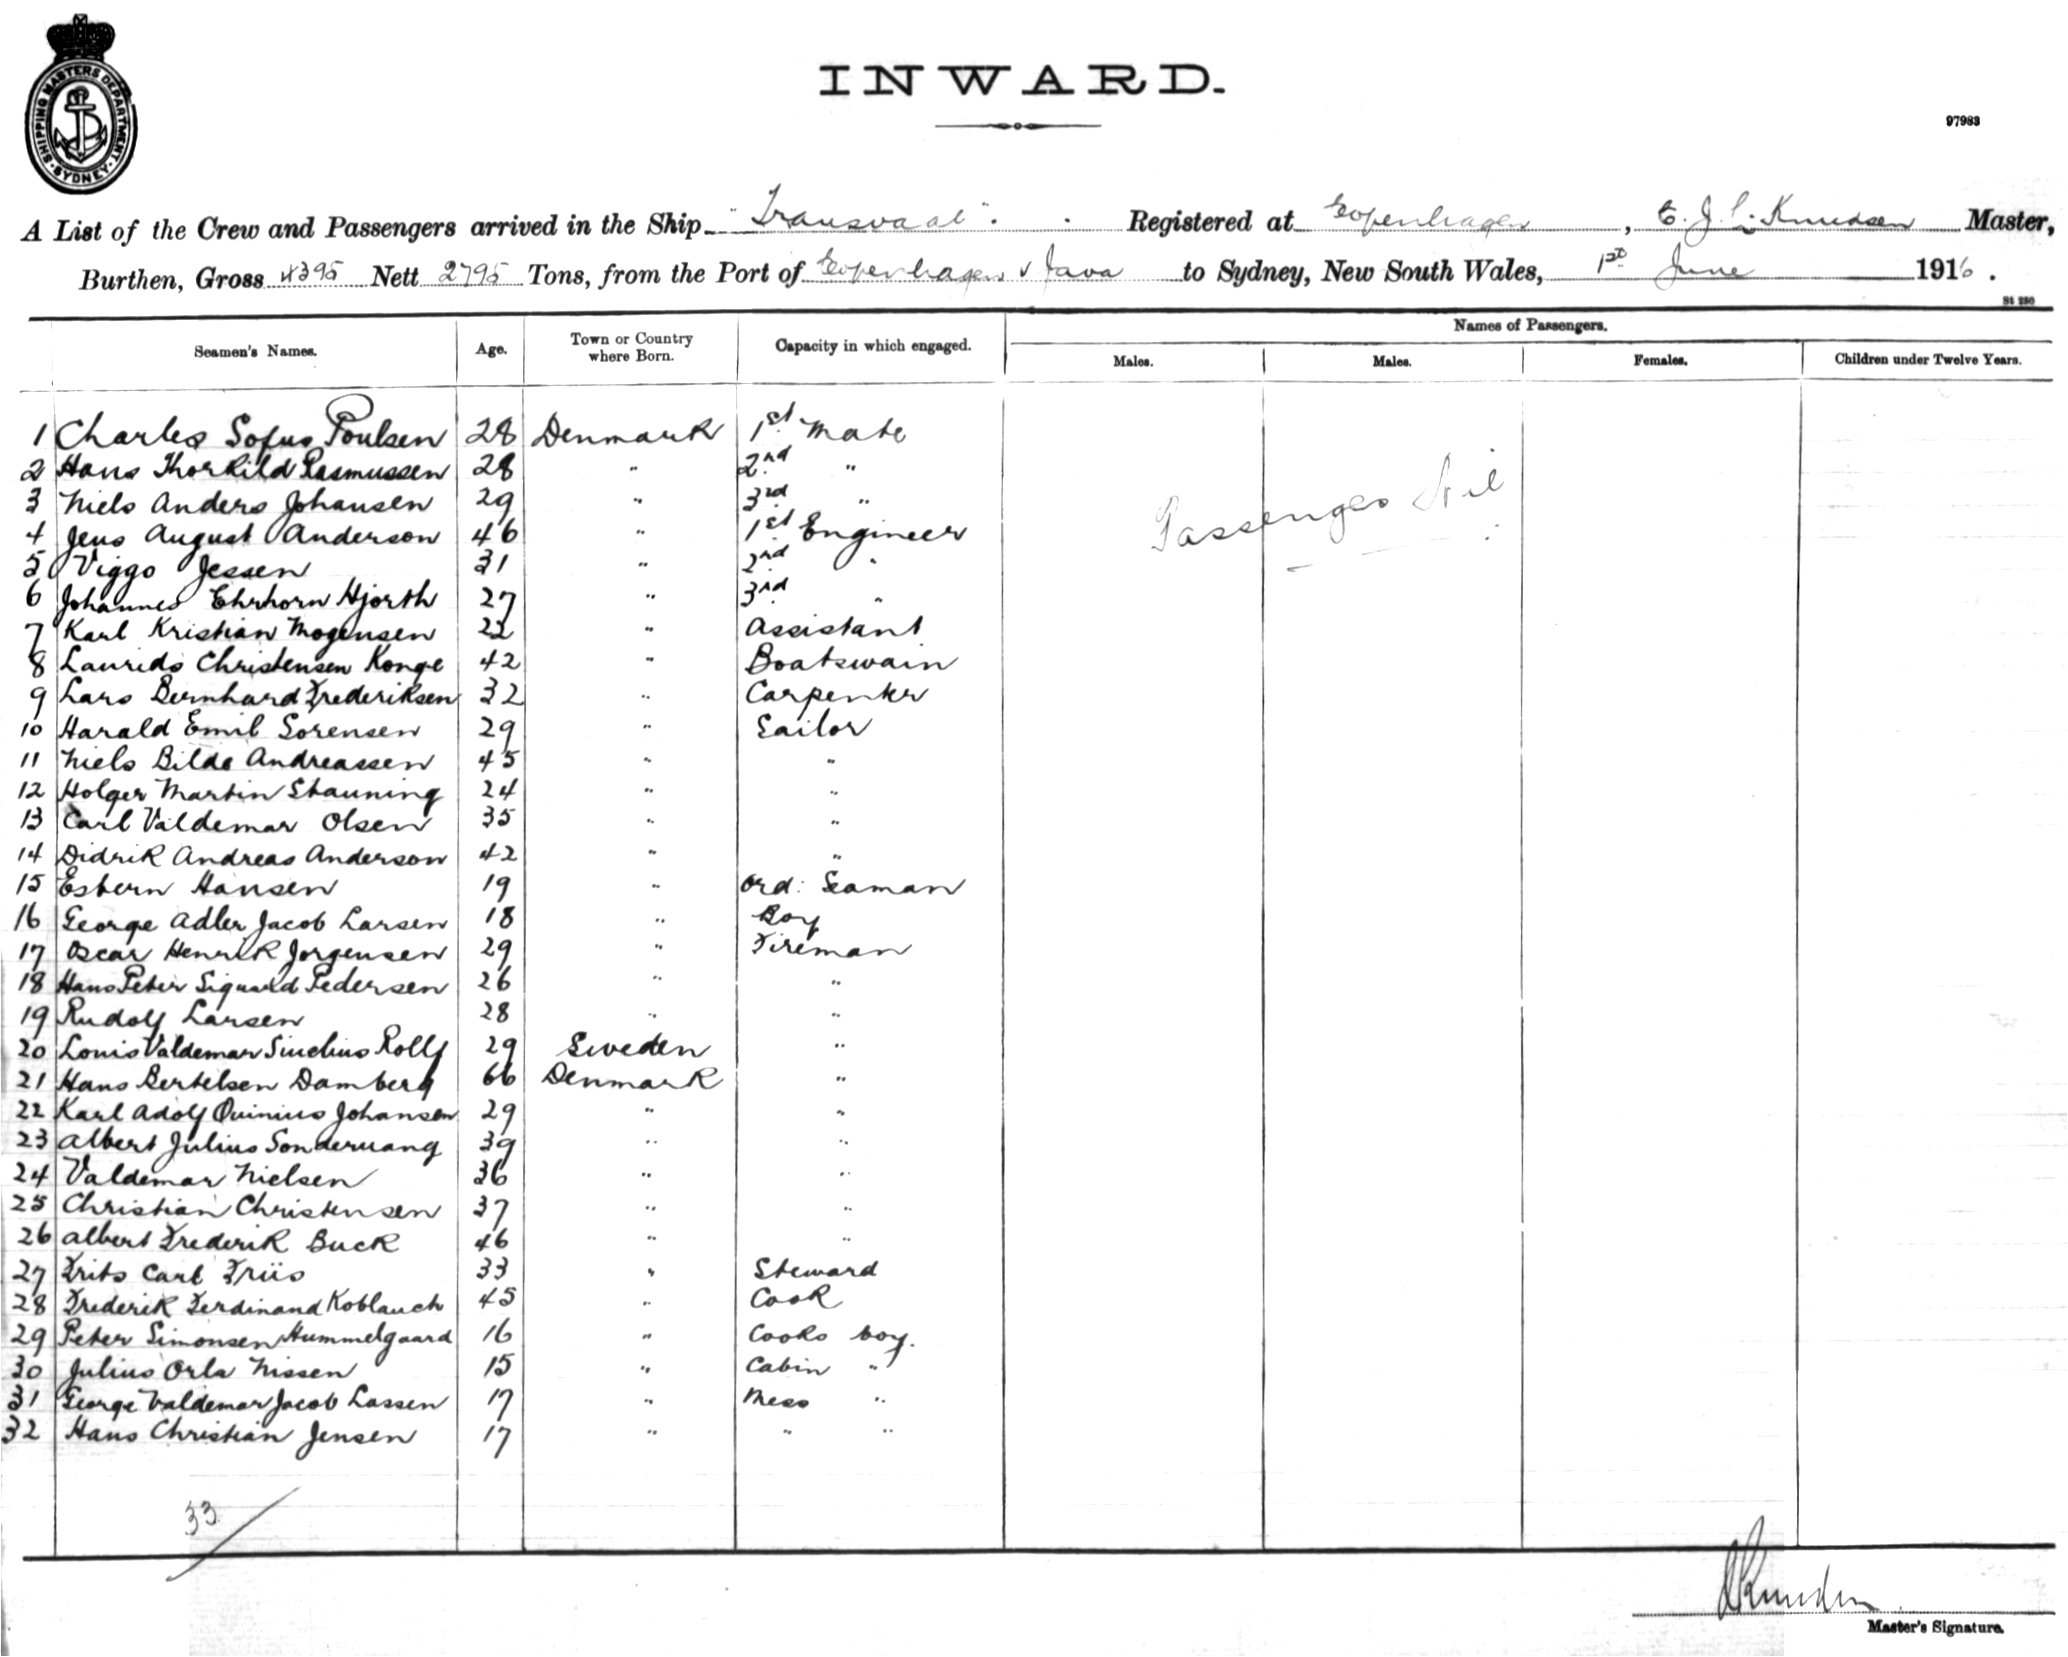 SHIPPING MASTERS DEPARTMENT · SYDNEY ·
INWARD.
97983
A List of the Crew and Passengers arrived in the Ship "Transvaal". Registered at Copenhagen, C. J. L. Knudsen Master,
Burthen, Gross 4395 Nett 2795 Tons, from the Port of Copenhagen v Java to Sydney, New South Wales, 1st June 1916.
St 250
Seamen's Names. Age. Town or Country where Born. Capacity in which engaged. Names of Passengers.
Males. Males. Females. Children under Twelve Years.
1 Charles Sofus Poulsen 28 Denmark 1st Mate
2 Hans Thorkild Rasmussen 28 " 2nd "
3 Niels Anders Johansen 29 " 3rd "
Passenges Nil
4 Jens August Anderson 46 " 1st Engineer
5 Viggo Jessen 31 " 2nd "
6 Johannes Ehrhorn Hjorth 27 " 3rd "
7 Karl Kristian Mogensen 22 " Assistant
8 Laurids Christensen Konge 42 " Boatswain
9 Lars Bernhard Frederiksen 32 " Carpenter
10 Harald Emil Sorensen 29 " Sailor
11 Niels Bilde Andreassen 45 " "
12 Holger Martin Stauning 24 " "
13 Carl Valdemar Olsen 35 " "
14 Didrik Andreas Anderson 42 " "
15 Esbern Hansen 19 " Ord: Seaman
16 George Adler Jacob Larsen 18 " Boy
17 Oscar Henrik Jorgensen 29 " Fireman
18 Hans Peter Siguard Pedersen 26 " "
19 Rudolf Larsen 28 " "
20 Louis Valdemar Rolly 29 Sweden "
21 Hans Bertelsen Damberg 66 Denmark "
22 Karl Adolf Quinius Johansen 29 " "
23 Albert Julius Sonderuang 39 " "
24 Valdemar Nielsen 36 " "
25 Christian Christensen 37 " "
26 Albert Frederik Buck 46 " "
27 Frits Carl Friis 33 " Steward
28 Frederik Ferdinand Koblauch 45 " Cook
29 Peter Simonsen Hummelgaard 16 " Cooks boy.
30 Julius Orla Nissen 15 " Cabin "
31 George Valdemar Jacob Lassen 17 " Mess "
32 Hans Christian Jensen 17 " " "
33
Knudsen
Master's Signature.